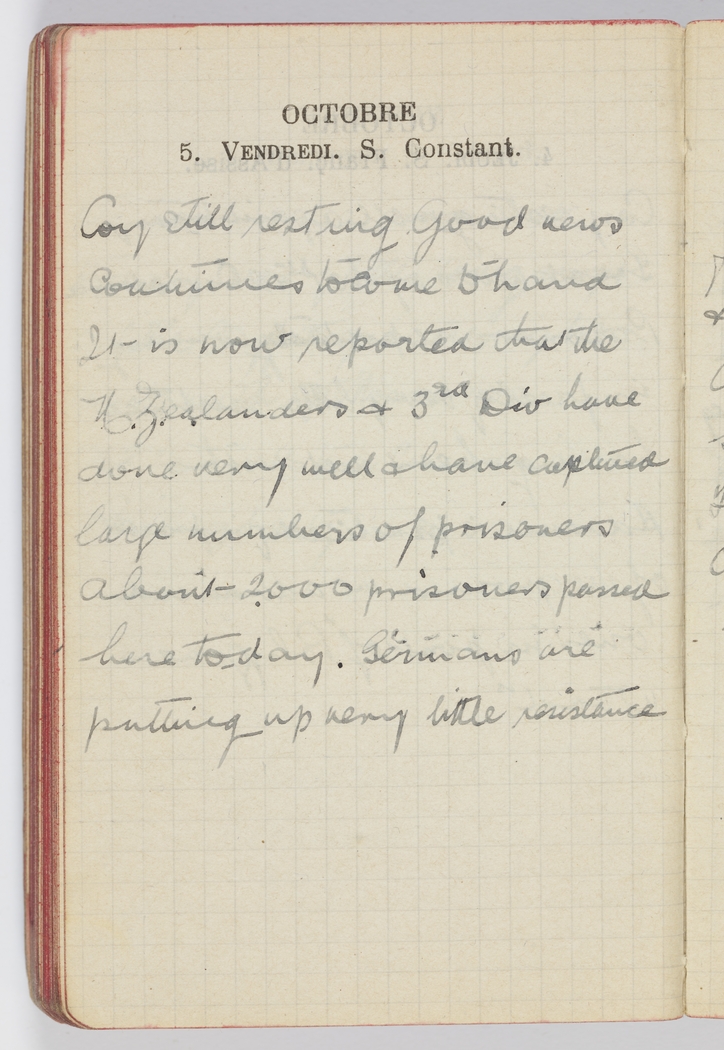 OCTOBRE
5. VENDREDI. S. Constant.
Coy still resting Good news
Continues to come to hand
It is now reported that the
N. Zealanders & 3rd Div have
done very well & have captured
large numbers of prisoners
About 2000 prisoners passed
here to-day. Germans are
putting up very little resistance